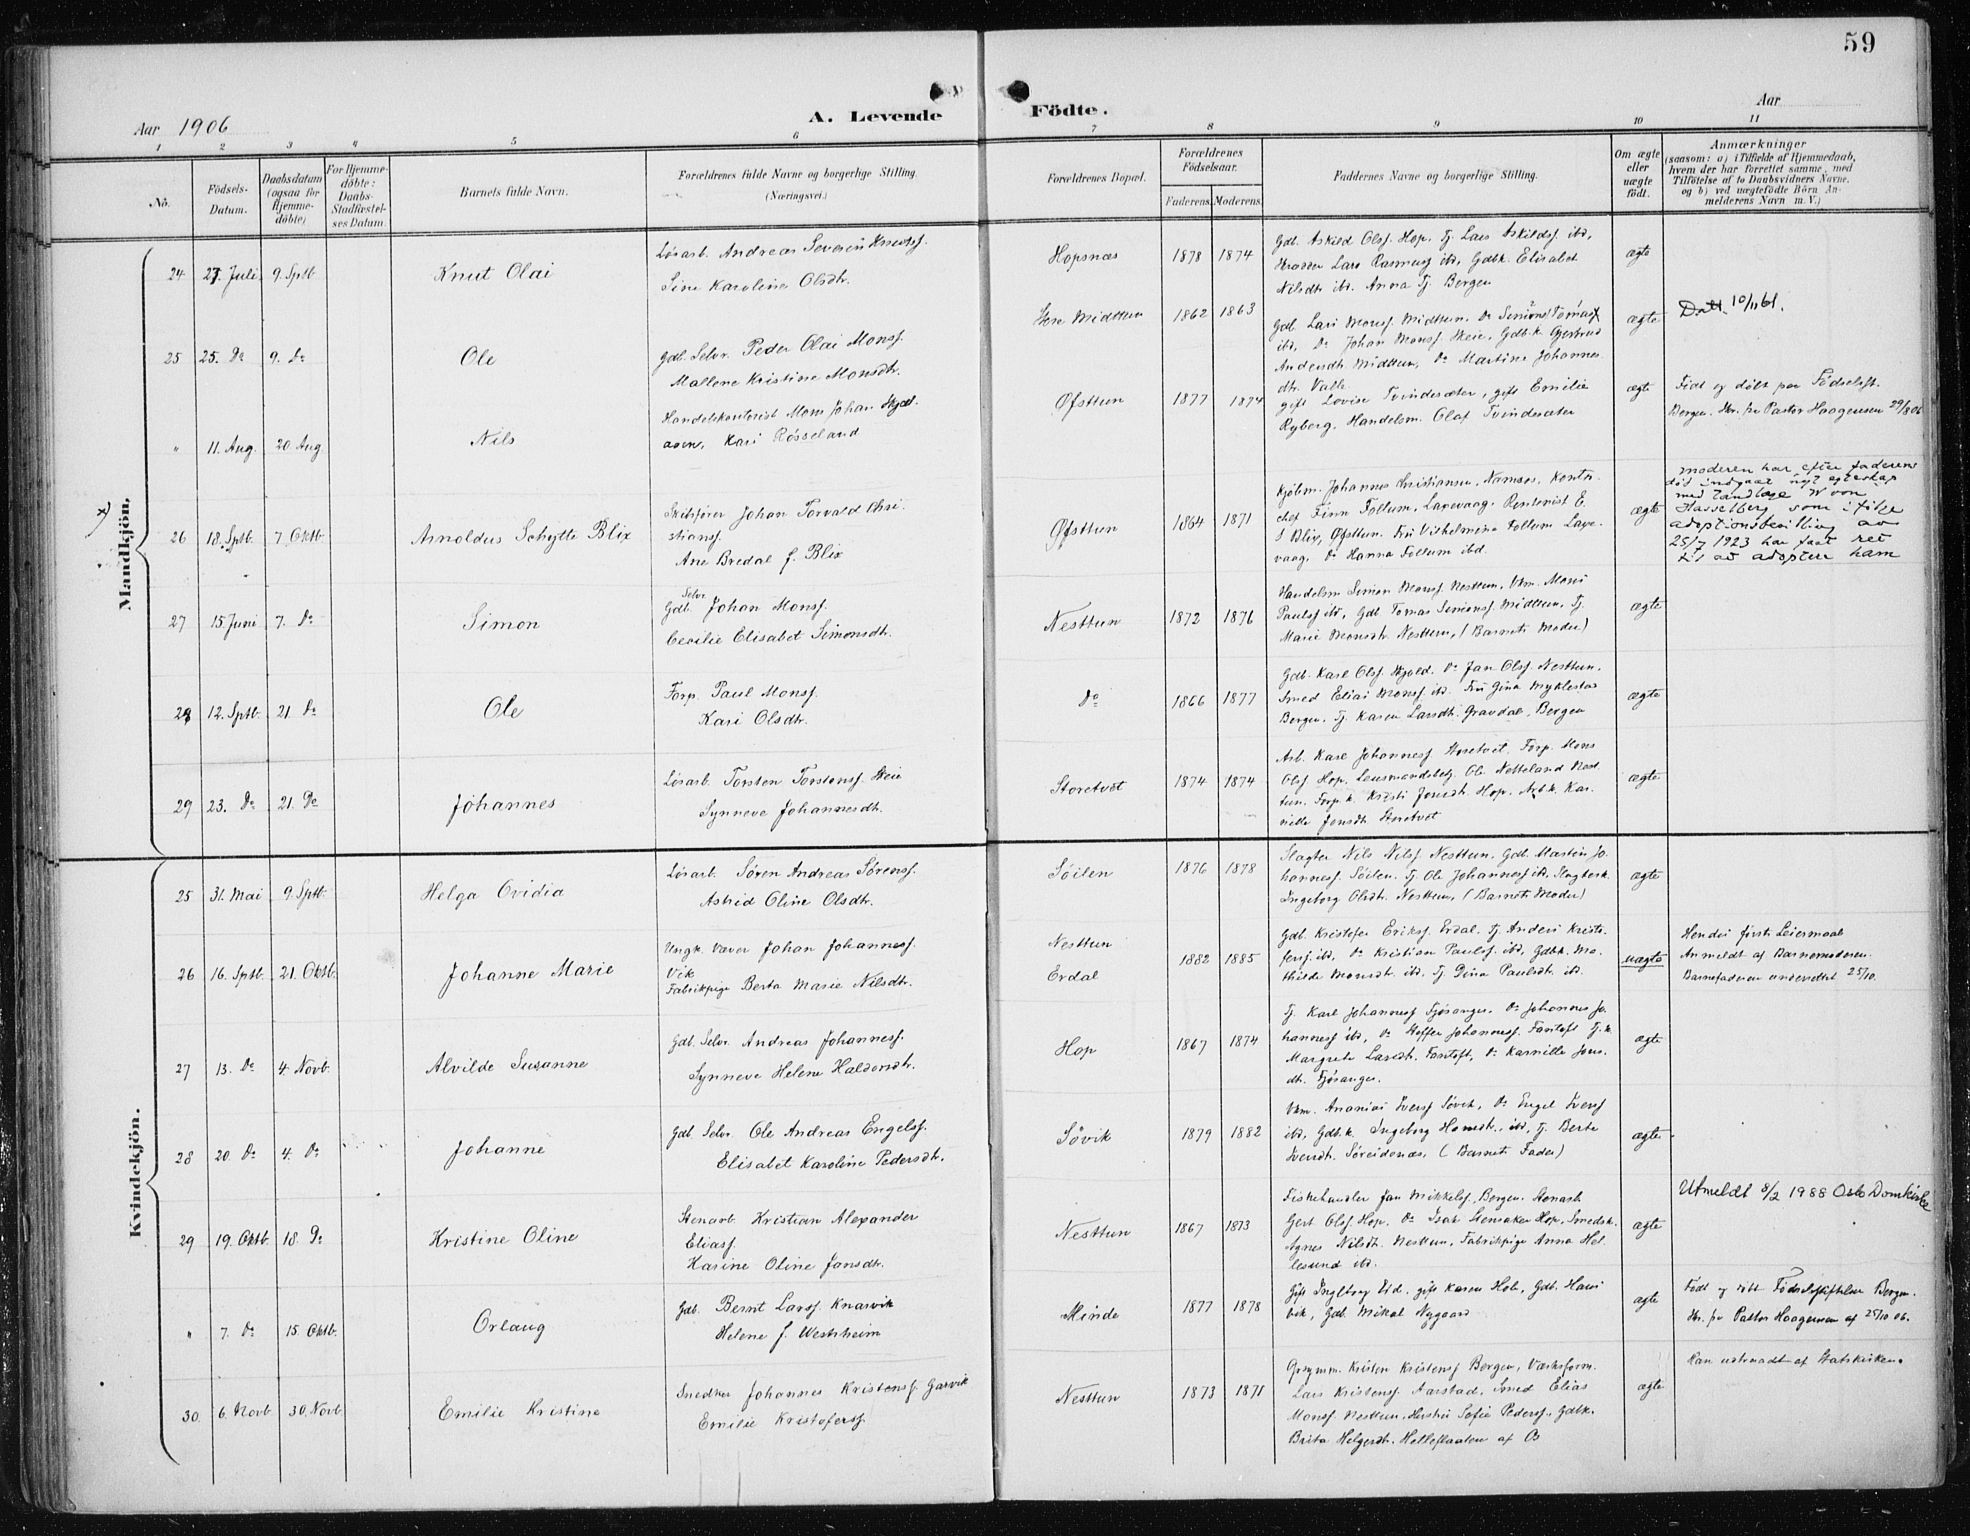 59
Aar 1906
A. Levende
Födte.
Aar
1 2 3 4 5 6 7 8 9 10 11
No.
Födsels-
Datum.
Daabsdatum
(ogsaa for
Hjemme-
döbte)
For Hjemme-
döbte:
Daabs-
Stadfæstel-
ses Datum.
Barnets fulde Navn.
Forældrenes fulde Navne og borgerlige Stilling.
(Næringsvei.)
Forældrenes Bopæl.
Forældrenes
Födselsaar.
Faderens. Moderens.
Faddernes Navne og borgerlige Stilling.
Om ægte
eller
uægte
födt.
Anmærkninger
(saasom: a) i Tilfælde af Hjemmedaab,
hvem der har forrettet samme, med
Tilföielse af to Daabsvidners Navne.
og b) ved uægtefödte Börn An-
melderens Navn m. V.)
Mandkjön.
24 27. Juli 9. Sptb. Knut Olai
Løsarb. Andreas Severin Knutsf.
Sine Karoline Olsdtr.
Hopsnæs 1878 1874
Gdb. Askild Olsf. Hop. Tj. Lars Askildsf. ibd,
Skrædder Lars Rasmusf ibd, Gdbk. Elisabet
Nilsdtr ibd. Anna Tj. Bergen
ægte
25 25. Do 9. Do Ole
Gdb. Selvr. Peder Olai Monsf.
Mallene Kristine Monsdtr.
Store Midttun 1862 1863
Gdb. Lars Monsf. Midttun. Do Simon Tomasf
ibd, Do Johan Monsf. Skeie, Gdb.k. Gjertrud
Andersdtr Midttun, Do Martine Johannes-
dtr. Valle
ægte
Død 10/11 61.
" 11. Aug. 20. Aug. Nils
Handelskontorist Mons Johan Skjold-
aven, Kari Røsseland
Øfsttun 1877 1874
gift Lovise Tvindesæter, gift Emilie
Ryberg. Handelsm. Olaf Tvindesæter
ægte
Født og døbt paa Fødselsst.
Bergen. Skr. fra Pastor Haagensen 29/8 06
x)
26 18. Sptb. 7. Oktb. Arnoldus Schytte Blix
Skibsfører Johan Torvald Chri-
stiansf.
Ane Bredal f. Blix
Øfsttun 1864 1871
Kjøbm. Johannes Christiansen, Namsos, Kontr.
chef Finn Follum, Laxevaag. Rentenist E.
S Blix, Øfsttun. Fru Vilhelmine Follum Laxe-
vaag, Do Hanna Follum ibd.
ægte
moderen har efter faderens
død indgaat nyt egteskap
med tandlæge W von
Hasselberg som ifølge
adoptionsbevilling av
25/7 1923 har faat ret
til at adoptere ham
27 15 Juni 7. Do Simon
Selvr.
Gdb. Johan Monsf.
Cecilie Elisabet Simonsdtr.
Nesttun 1872 1876
Handelsm Simon Monsf Nesttun, Vkm. Mons
Paulsf ibd, Gdb. Tomas Simonsf Midttun, Tj.
Marie Monsdtr. Nesttun, (Barnets Moder)
ægte
28 12. Sptb. 21. Do Ole
Forp. Paul Monsf.
Kari Olsdtr.
Do 1866 1877
Gdb. Karl Olsf. Skjold. Do Jan Olsf Nesttun.
Smed Elias Monsf. ibd. Fru Gina Myklestad
Bergen. Tj. Karen Larsdtr. Gravdal, Bergen
ægte
29 23. Do 21. Do Johannes
Løsarb. Torsten Torstensf. Skeie
Synneve Johannesdtr.
Storetvet 1874 1874
Arb. Karl Johannesf Storetvet, Forp. Mons
Olsf Hop, Lensmandsbetj. Ol. Netteland Nest-
tun. Forp.k. Kristi Jensdtr. Hop. Arb.k. Kar-
nille Jensdtr Storetvet
ægte
Kvindekjön.
25 31. Mai 9. Sptb. Helga Ovidia
Løsarb. Søren Andreas Sørensf.
Astrid Oline Olsdtr.
Søilen 1876 1878
Slagter Nils Nilsf Nesttun. Gdb. Martin Jo-
hannesf. Søilen. Tj. Ole Johannesf ibd, Slagterk.
Ingeborg Olsdtr. Nesttun, (Barnets Moder)
ægte
26 16. Sptb. 21. Oktb. Johanne Marie
Ungk. Væver Johan Johannesf.
Vik
Fabrikpige Berta Marie Nilsdtr.
Nesttun
Erdal
1882 1885
Gdb. Kristofer Eriksf. Erdal. Tj. Anders Kristo-
fersf. ibd, Do Kristian Paulsf. ibd, Gdbk. Ma-
thilde Monsdtr. ibd, Tj. Dina Paulsdtr. ibd.
uægte
Hendes første Leiermaal
Anmeldt af Barnemoderen.
Barnefaderen underrettet 25/10.
27 13. Do 4. Novb. Alvilde Susanne
Gdb. Selvr. Andreas Johannesf.
Synneve Helene Haldorsdtr.
Hop 1867 1874
Tj. Karl Johannesf Fjøsanger. Do Johannes Jo-
hannesf ibd, Do Steffen Johannesf. Fantoft Tj.k.
Margrete Larsdtr. Fantoft, Do Karnille Jens-
dtr. Fjøsanger.
ægte
28 20. Do 4. Do Johanne
Gdb. Selvr. Ole Andreas Engelsf.
Elisabet Karoline Pedersdtr.
Søvik 1879 1882
Vkm. Ananias Iversf Søvik, Do Engel Iversf
ibd, Gdb.k. Ingeborg Hansdtr. ibd, Tj. Berte
Iversdtr. Søreidenæs, (Barnets Fader)
ægte
29 19. Oktb. 18. Do Kristine Oline
Stenarb. Kristian Alexander
Eliasf.
Karine Oline Jansdtr.
Nesttun 1867 1873
Fiskehandler Jan Mikkelsf, Bergen. Stenarb.
Gert Olsf. Hop. Do Isak Stensaker Hop, Smedsk.
Agnes Nilsdtr. Nesttun. Fabrikpige Anna Hel-
lesund ibd.
ægte
Utmeldt 8/2 1988 Oslo Domkirke
" 7. Do 15. Oktb. Orlaug
Gdb. Bernt Larsf. Knarvik
Helene f. Westrheim
Minde 1877 1878
Gift Ingeborg Eid. gift Karen Hole, Gdb. Hans
vik, Gdb. Mikal Nygaard
ægte
Født og døbt Fødselsstiftelsen Bergen.
Skr. fra Pastor Haagensen af 25/10 06.
30. 6. Novb 30. Novb. Emilie Kristine
Snedker Johannes Kristensf. Garvik
Emilie Kristofersf.
Nesttun 1873 1871
Grosymm. Kristen Kristensf Bergen, Værksform.
Lars Kristensf. Aarstad, Smed Elias
Monsf. Nesttun, Hustru Sofie Pedersf., Gdbk.
Brita Helgesdtr. Helleflaaten af Os
ægte
Han udtraadt af Statskirken.